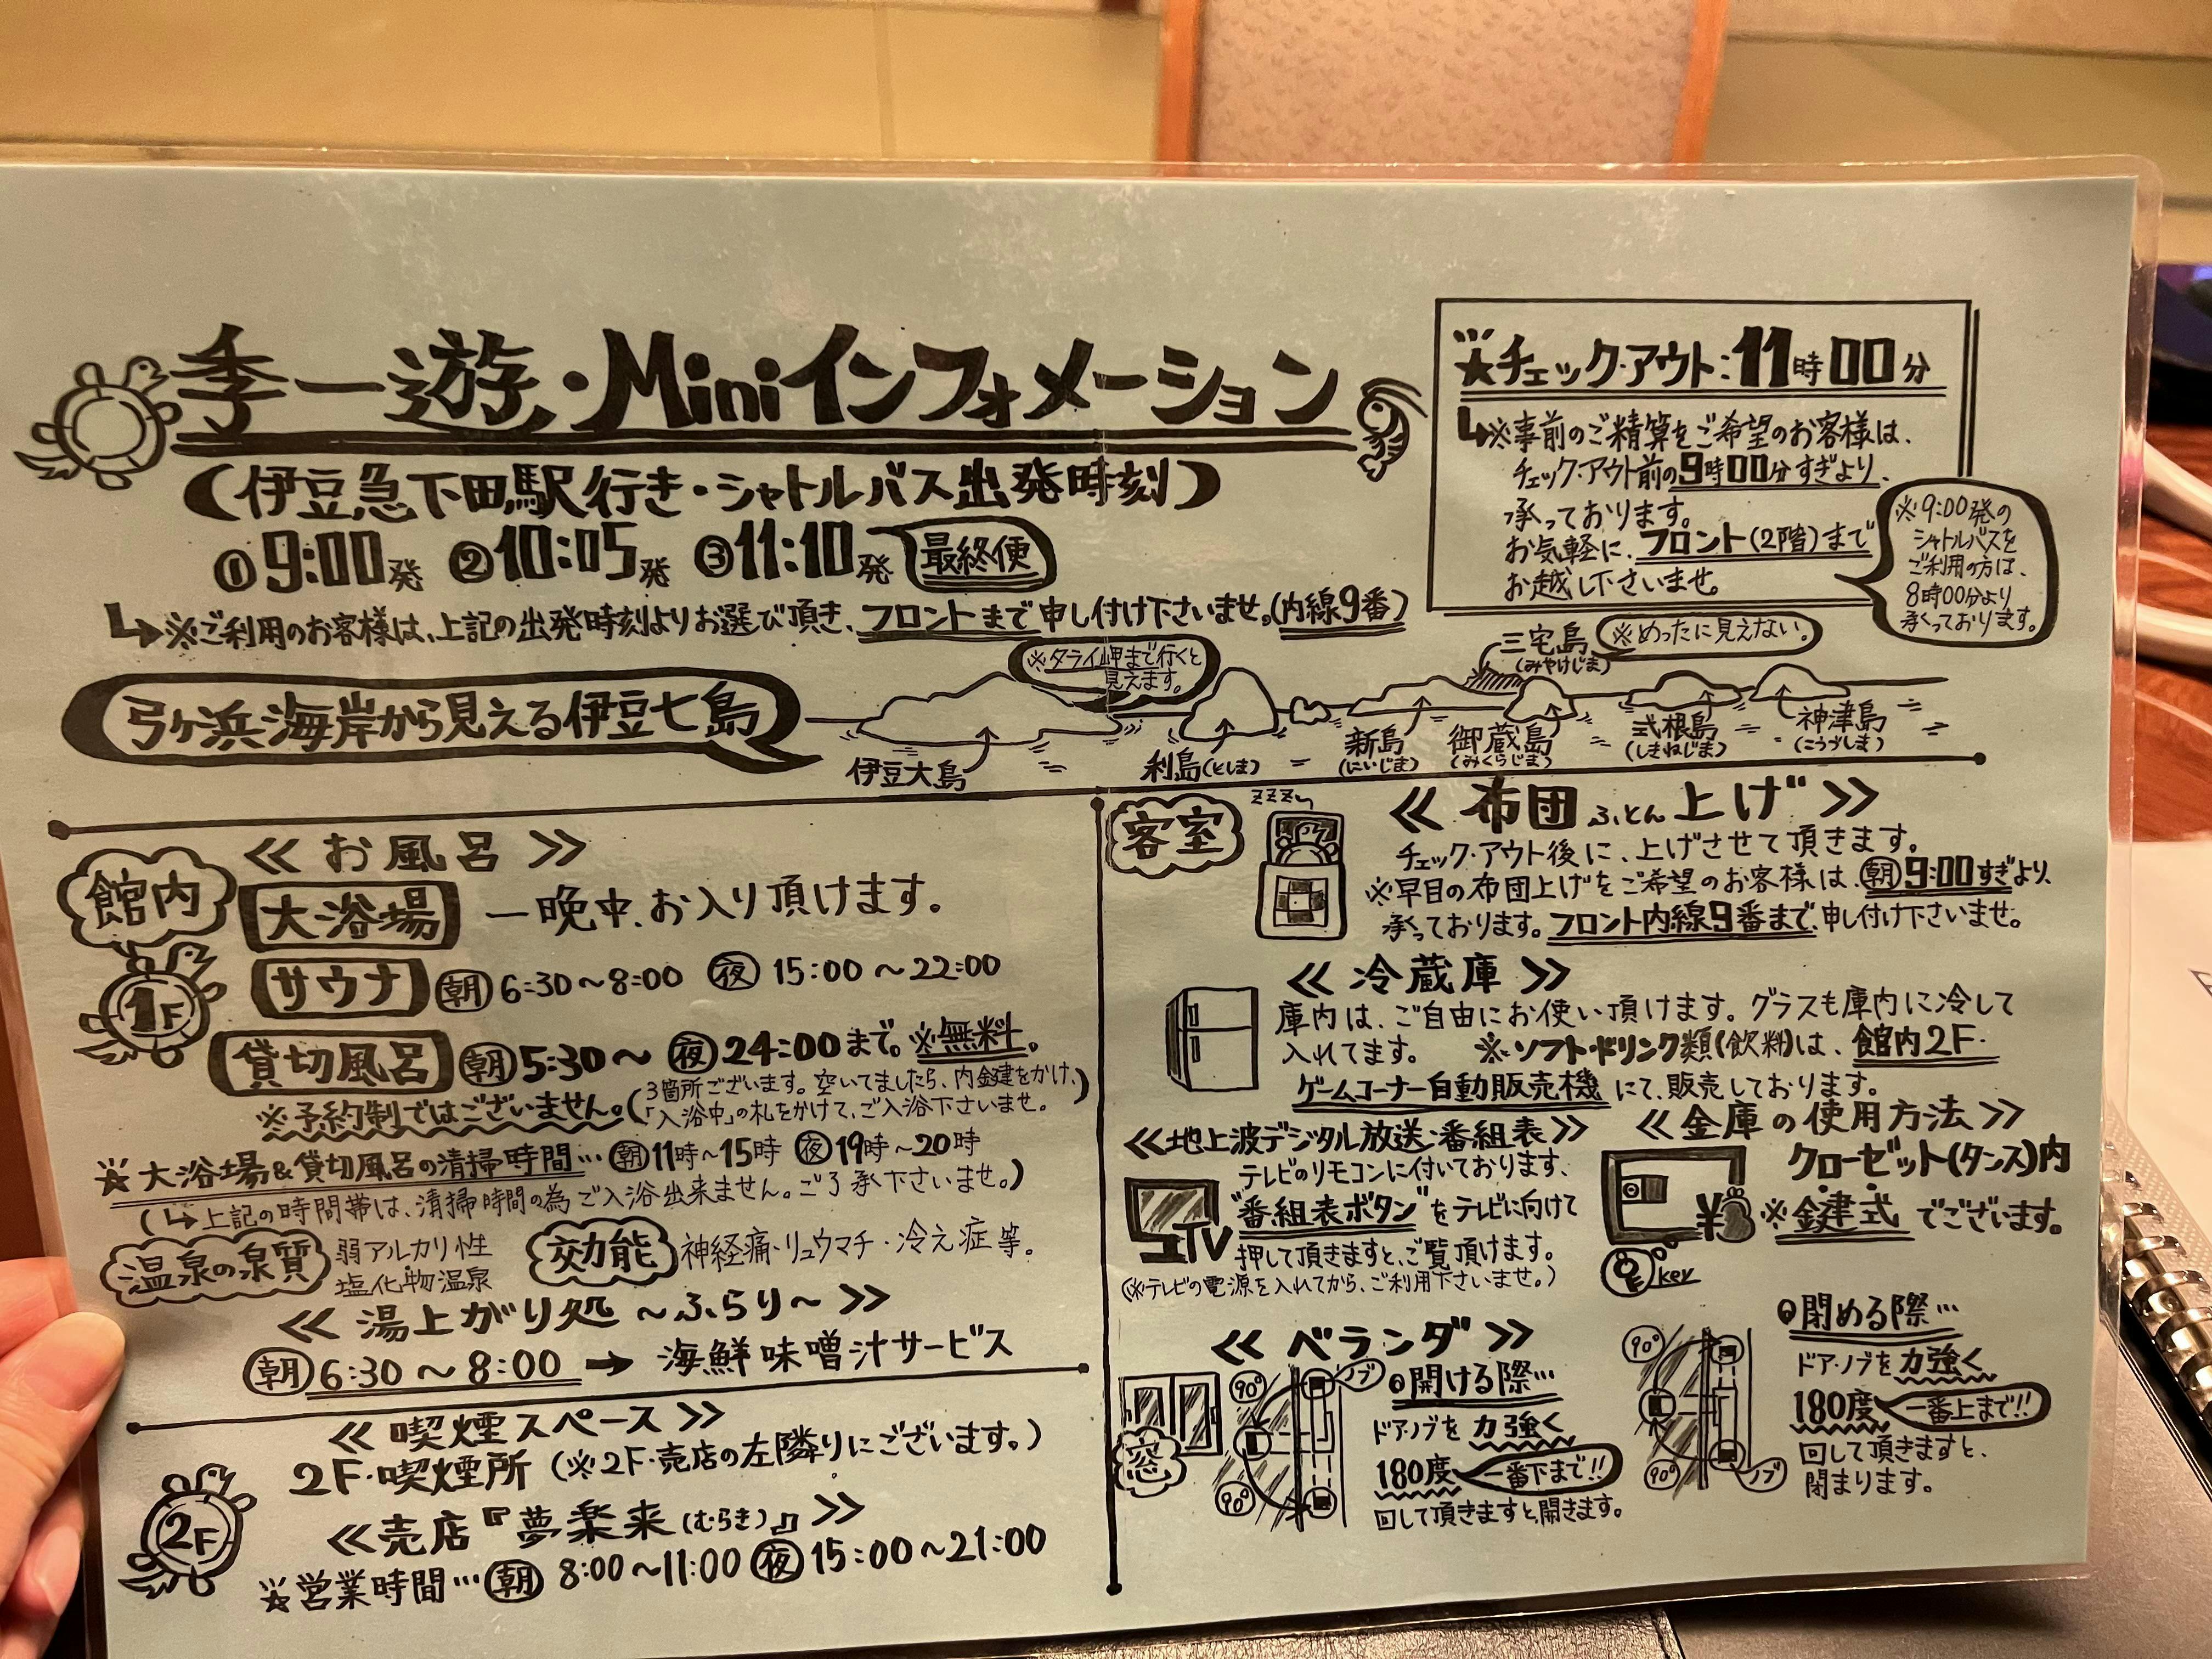 季一遊・Miniインフォメーション
(伊豆急下田駅行き・シャトルバス出発時刻)
①9:00発 ②10:05発 ③11:10発 最終便
※ご利用のお客様は、上記の出発時刻よりお選び頂き、フロントまで申し付け下さいませ。(内線9番)
★チェック・アウト:11時00分
※事前のご精算をご希望のお客様は、
チェック・アウト前の9時00分すぎより、
承っております。
お気軽に、フロント(2階)まで
お越し下さいませ。
※9:00発の
シャトルバスを
ご利用の方は、
8時00分より
承くっております。
弓ヶ浜海岸から見える伊豆七島
※タライ岬まで行くと
見えます。
三宅島
(みやけじま)
※めったに見えない。
伊豆大島
利島(としま)
新島
(にいじま)
御蔵島
(みくらじま)
式根島
(しきねじま)
神津島
(こうづしま)
館内
1F
≪お風呂≫
大浴場 一晩中、お入り頂けます。
サウナ 朝 6:30~8:00 夜 15:00~22:00
貸切風呂 朝 5:30~ 夜 24:00まで。※無料。
※予約制ではございません。
(3箇所ございます。空いてましたら、内鍵をかけ、
「入浴中」の札をかけて、ご入浴下さいませ。)
☆大浴場&貸切風呂の清掃時間…朝11時~15時 夜19時~20時
(上記の時間帯は、清掃時間の為ご入浴出来ません。ご了承下さいませ。)
温泉の泉質 弱アルカリ性
塩化物温泉
効能 神経痛・リュウマチ・冷え症等。
≪湯上がり処~ふらり~≫
朝 6:30~8:00 → 海鮮味噌汁サービス
2F
≪喫煙スペース≫
2F・喫煙所(※2F・売店の左隣りにございます。)
≪売店『夢楽来(むらき)』≫
☆営業時間…朝 8:00~11:00 夜 15:00~21:00
客室
zzz
≪布団ふとん上げ≫
チェック・アウト後に、上げさせて頂きます。
※早目の布団上げをご希望のお客様は、朝9:00すぎより、
承っております。フロント内線9番まで、申し付け下さいませ。
≪冷蔵庫≫
庫内は、ご自由にお使い頂けます。グラスも庫内に冷して
入れてます。 ※ソフト・ドリンク類(飲料)は、館内2F・
ゲームコーナー自動販売機にて、販売しております。
≪地上波デジタル放送・番組表≫
テレビのリモコンに付いております、
TV
"番組表ボタン"をテレビに向けて
押して頂きますと、ご覧頂けます。
(※テレビの電源を入れてから、ご利用下さいませ。)
≪金庫の使用方法≫
クローゼット(タンス)内
¥
※鍵式でございます。
key
≪ベランダ≫
窓
90°
90°
ノブ
●開ける際…
ドア・ノブを力強く
180度 一番下まで!!
回して頂きますと、開きます。
90°
90°
ノブ
●閉める際…
ドア・ノブを力強く
180度 一番上まで!!
回して頂きますと、
閉まります。